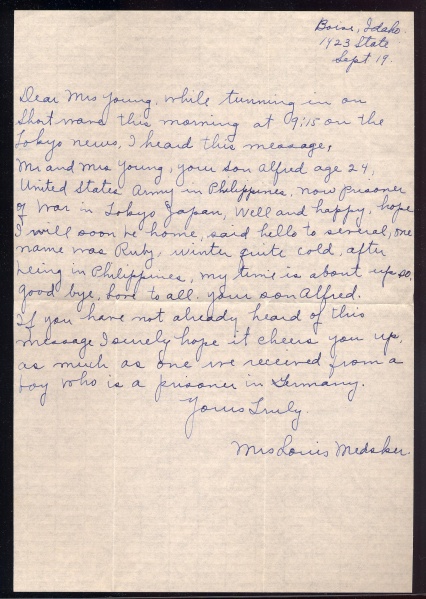 Boise, Idaho.
1423 State
Sept 19.
Dear Mrs Young, while tunning in on
Short wave this morning at 9:15 on the
Tokyo news, I heard this message,
Mr and Mrs Young, your son Alfred age 24,
United States Army in Philippines, now prisoner
of War in Tokyo Japan, Well and happy, hope
I will soon be home, said hello to several, one
name was Ruby, winter quite cold, after
being in Philippines, my time is about up so,
good bye, love to all. your son Alfred.
If you have not already heard of this
message I surely hope it cheers you up,
as much as one we received from a
boy who is a prisoner in Germany.
Yours Truly.
Mrs Louis Medsker.